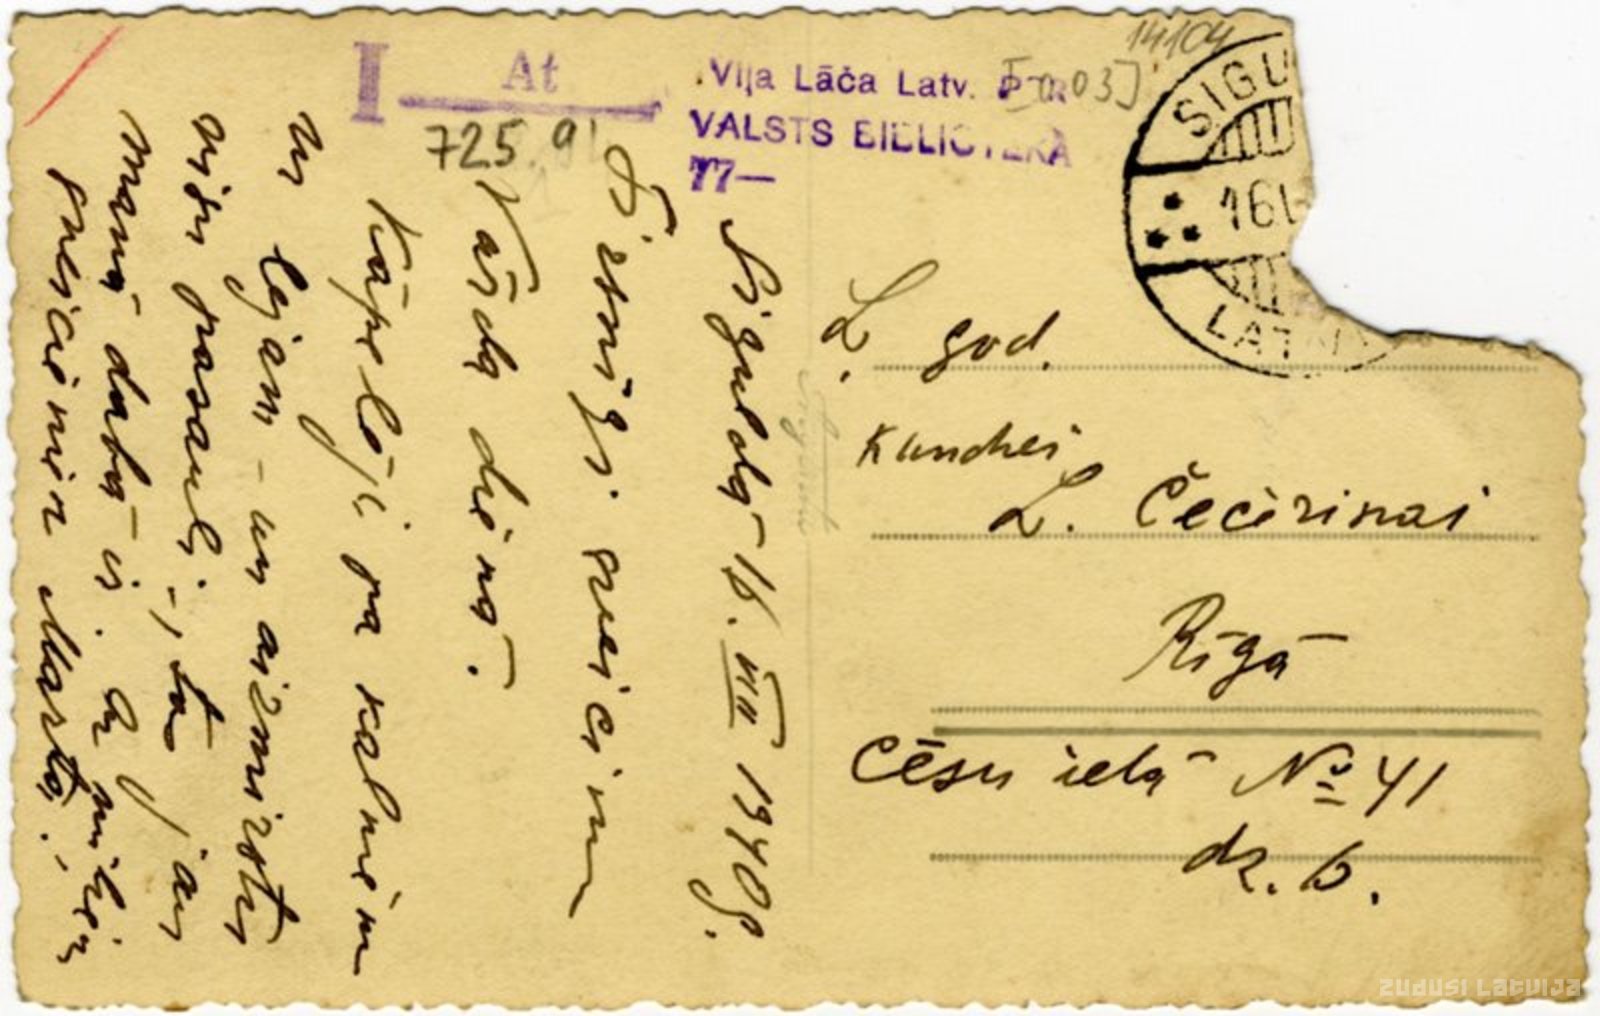 I At
725.91
Viļa Lāča Latv. PSR
VALSTS BIBLIOTĒKA
77—
14104
SIGU
16
LAT
Siguldā 16. VIII 1940g.
Sirsnīgi sveicinu
Vārda dienā.
Kāpelēju pa kalniem
un lejām – un aizmirstu
visu pasauli –, tas jau
manā dabā ir. Ar mīļiem
sveicieniem Marta.
L. god.
Kundzei
L. Čečeriņai
Rīgā
Cēsu ielā № 41
dz. 6.
ZUDUSI LATVIJA